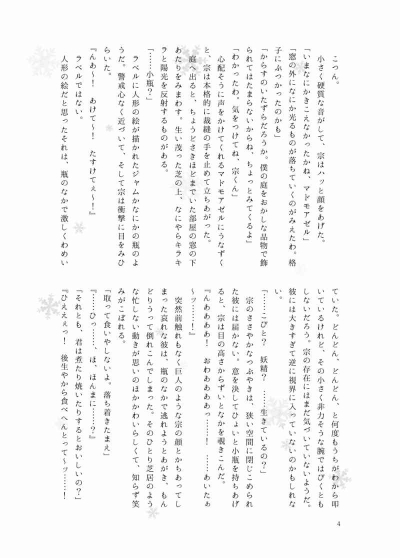 こつん。
　小さく硬質な音がして、宗はハッと顔をあげた。
「いまなにかきこえなかったかね、マドモアゼル」
「窓の外になにか光るものが落ちていくのがみえたわ、格
子にぶつかったのかも」
「からすのいたずらだろうか。僕の庭をおかしな品物で飾
られてはたまらないからね、ちょっとみてくるよ」
「わかったわ、気をつけてね、宗くん」
　心配そうに声をかけてくれるマドモアゼルにうなずく
と、宗は本格的に裁縫の手を止めて立ちあがった。
　庭へ出ると、ちょうどさきほどまでいた部屋の窓の下
あたりをみまわす。生い茂った芝の上、なにやらキラキ
ラと陽光を反射するものがある。
「……小瓶？」
　ラベルに人形の絵が描かれたジャムかなにかの瓶のよ
うだ。警戒心なく近づいて、そして宗は衝撃に目をみひ
らいた。
『んあ～！　あけて～！　たすけてぇ～！』
　ラベルではない。
　人形の絵だと思ったそれは、瓶のなかで激しくわめい
ていた。どんどん、どんどん、と何度もうちがわから叩
いているけれど、その小さく非力そうな腕ではびくとも
しないだろう。宗の存在にはまだ気づいていないようだ。
彼には大きすぎて逆に視界に入っていないのかもしれな
い。
「……こびと？　妖精？　……生きているの？」
　宗のささやかなつぶやきは、狭い空間に閉じこめられ
た彼には届かない。意を決してひょいと小瓶を持ちあげ
ると、宗は目の高さからずいとなかを覗きこんだ。
『んああああ！　おわああああっ……！　……あいたぁ
～ッ……！』
　突然前触れもなく巨人のような宗の顔とかちあってし
まった哀れな彼は、瓶のなかで逃れようとあがき、もん
どりうって倒れこんでしまった。そのひとり芝居のよう
な忙しない動きが思いのほかかわいらしくて、知らず笑
みがこぼれる。
「取って食いやしないよ。落ち着きたまえ」
『……ひっ……、ほ、ほんまに……？』
「それとも、君は煮たり焼いたりするとおいしいの？」
『ひえええっ！　後生やから食べへんとって～ッ……！』
4